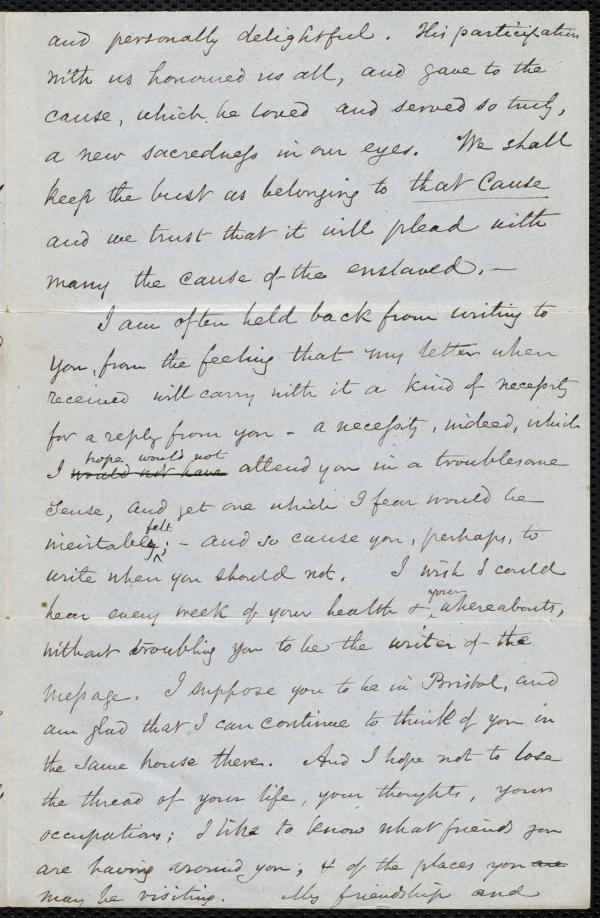 and personally delightful. His participation
with us honoured us all, and gave to the
cause, which he loved and served so truly,
a new sacredness in our eyes. We shall
keep the bust as belonging to that Cause
and we trust that it will plead with
many the cause of the enslaved. –
I am often held back from writing to
you, from the feeling that my letter when
received will carry with it a kind of necessity
for a reply from you – a necessity, indeed, which
hope would not
I would not have attend you in a troublesome
sense, and yet one which I fear would be
felt
inevitably; – and so cause you, perhaps, to
write when you should not. I wish I could
your
hear every week of your health & whereabouts,
without troubling you to be the writer of the
message. I suppose you to be in Bristol, and
am glad that I can continue to think of you in
the same house there. And I hope not to lose
the thread of your life, your thoughts, your
occupations; I like to know what friends you
are having around you, & of the places you are
may be visiting. My friendship and